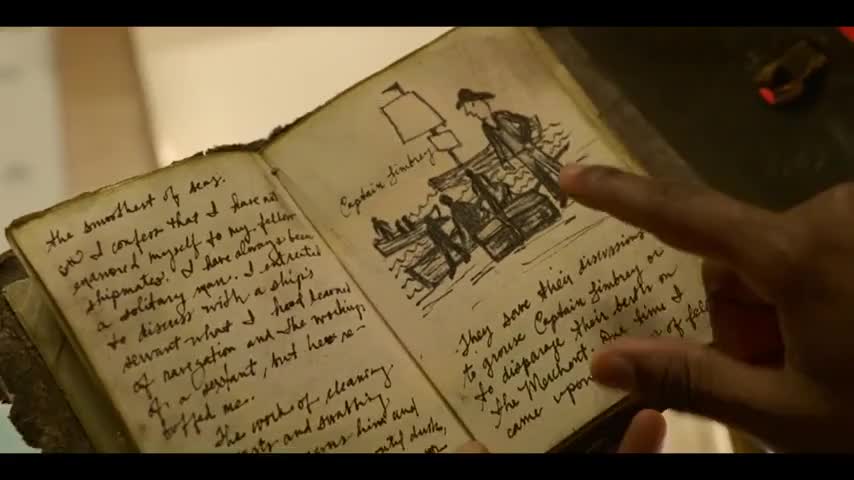 the smoothest of seas.
I confess that I have not
enamored myself to my fellow
shipmates. I have always been
a solitary man. I entreated
to discuss with a ship's
servant what I had learned
of navigation and the working
of a servant, but he re-
buffed me.
The work of cleaning
and swathing
him and
dusk,
Captain Limbrey
They save their discussions
to grouse Captain Limbrey or
to disparage their berth on
the Merchant. One time I
came upon of